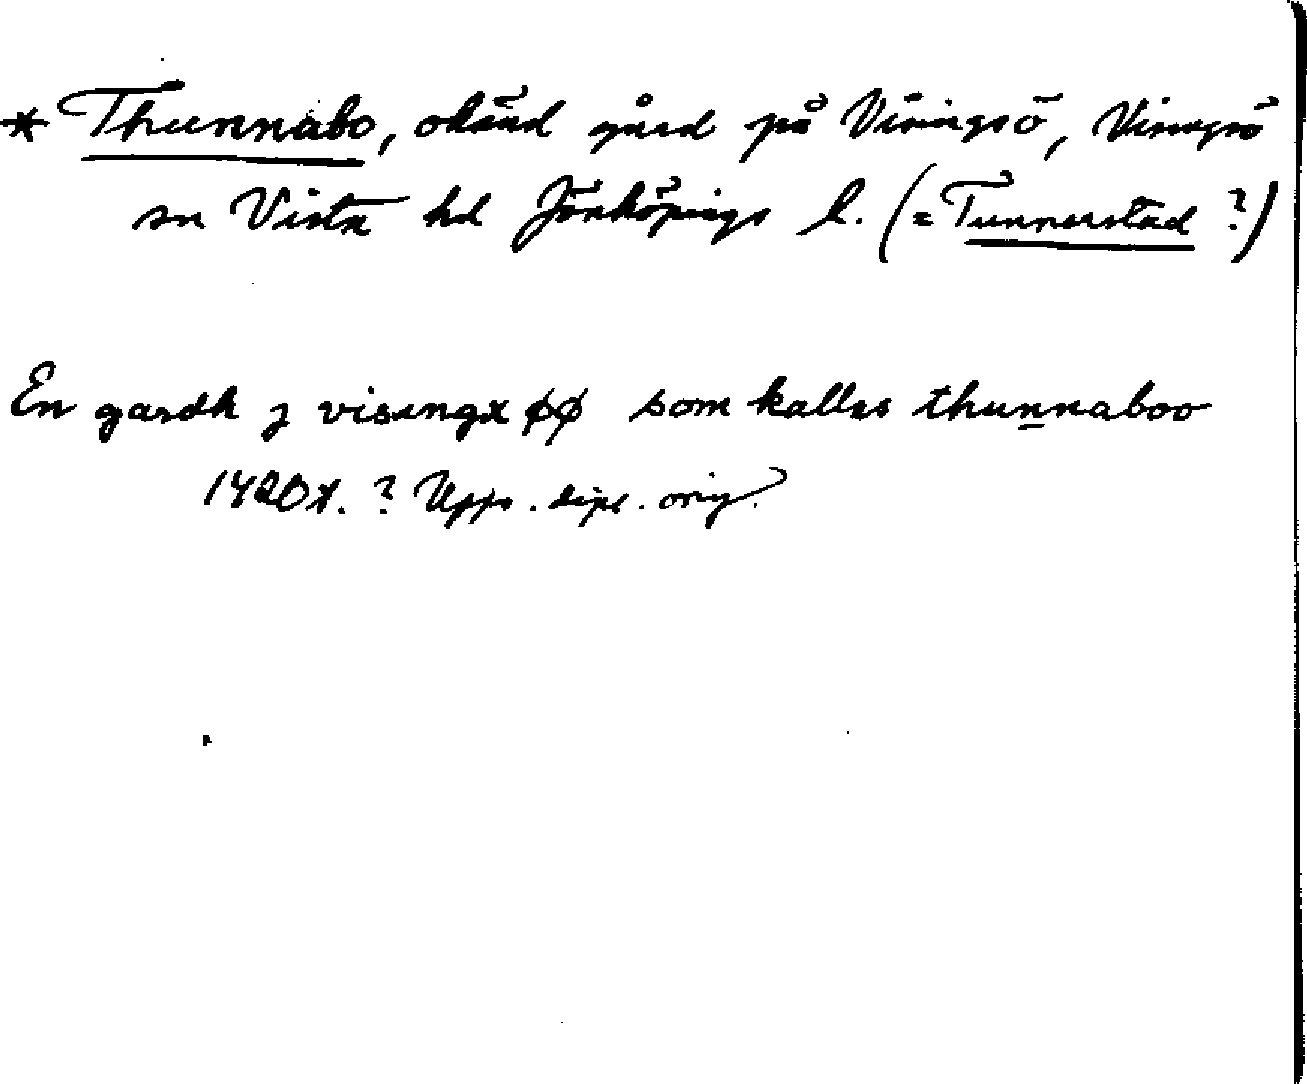 * Thunnabo, okänd gård på Visingsö, Visingsö
sn Vista hd Jönköpings l. (= Tunnerstad ?)
En gardh j visingx øø som kallas thunnaboo
1420 t. ? Upps. dipl. orig.